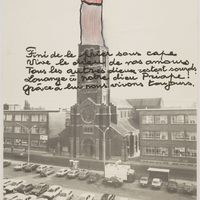 Fini de le fêter sous cape
Vive le dieu de vos amours,
Tous les autres dieux restent sourds
Louange à notre dieu Priape!
Grâce à lui nous vivons toujours.